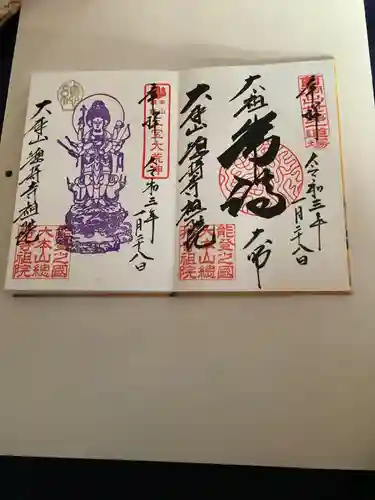 奉拝
大祖 常済 大師
令和三年
一月二十八日
大本山總持寺祖院
能登之國
大本山總
持寺祖院
奉拝
三宝大荒神
令和三年
一月二十八日
大本山總持寺祖院
能登之國
大本山總
持寺祖院